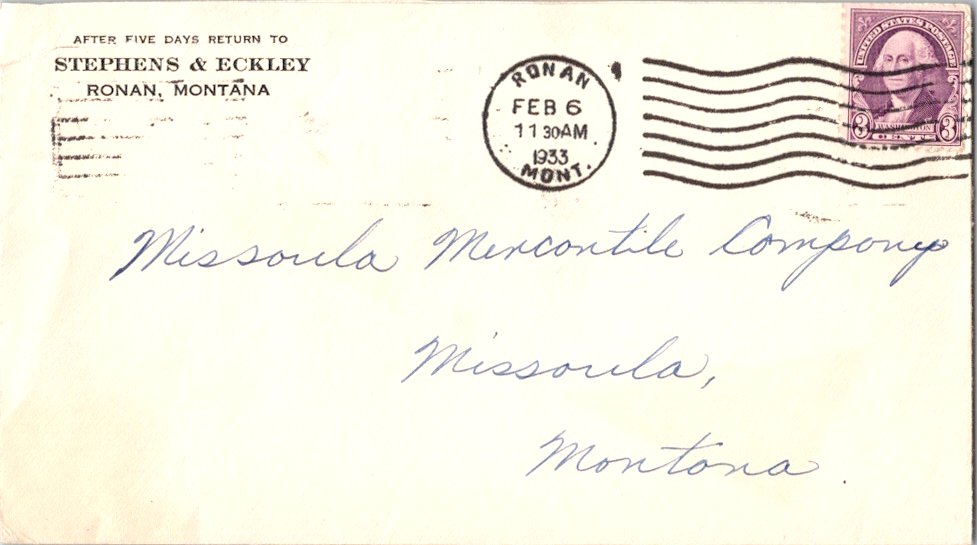 AFTER FIVE DAYS RETURN TO
STEPHENS & ECKLEY
RONAN, MONTANA
RONAN
FEB 6
11 30 AM
1933
MONT.
UNITED STATES POSTAGE
3 WASHINGTON 3
Missoula Mercantile Company
Missoula,
Montana.